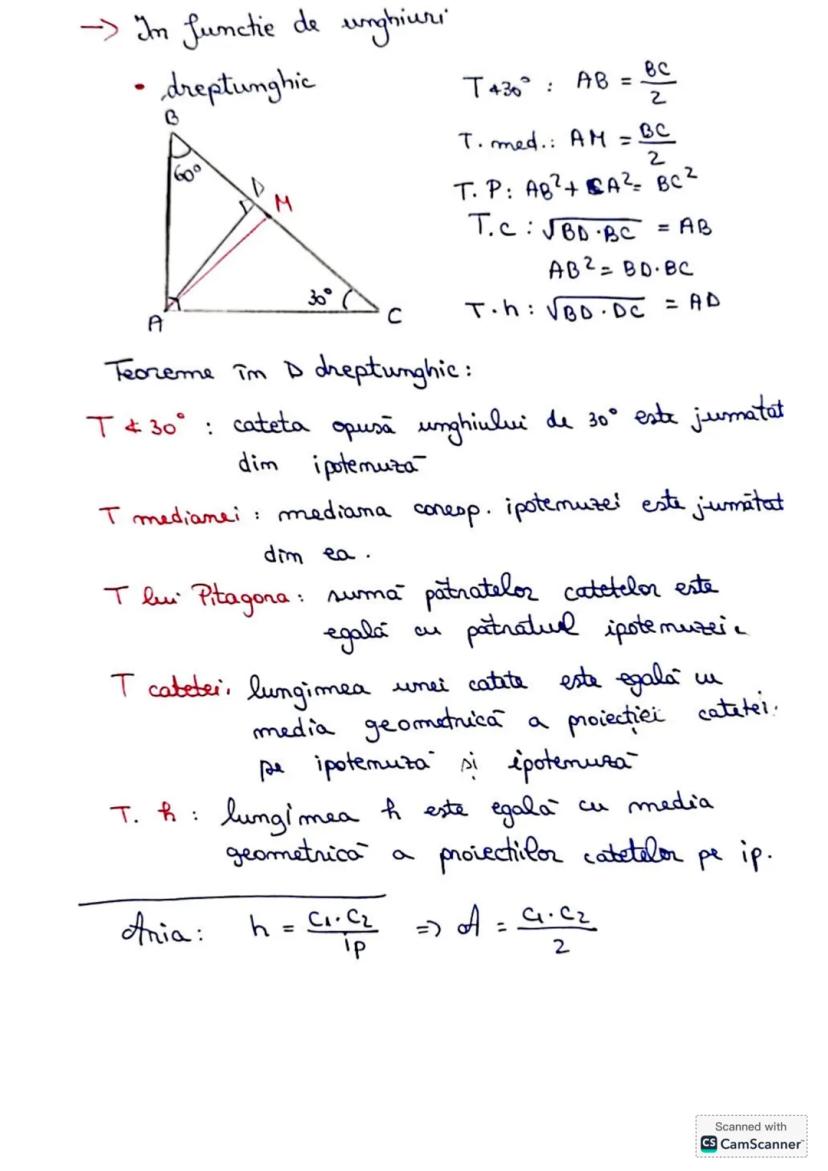 → In functie de unghiuri
• dreptunghic
B
60°
D
M
30°
A
C
T∢30° : AB = BC/2
T. med.: AM = BC/2
T. P: AB²+ CA²= BC²
T.c : √BD·BC = AB
AB²= BD·BC
T.h : √BD·DC = AD
Teoreme în Δ dreptunghic:
T ∢ 30° : cateta opusă unghiului de 30° este jumatat
dim ipotenuză
T medianei : mediana coresp. ipotenuzei este jumătat
din ea.
T lui Pitagora: sumă pătratelor catetelor este
egală cu pătratul ipotenuzei.
T catetei. lungimea unei catete este egală cu
media geometrică a proiecției catetei.
pe ipotenuză și ipotenuză
T. h : lungimea h este egală cu media
geometrică a proiectiilor catetelor pe ip.
Aria: h = C₁·C₂/ip => A = C₁·C₂/2
Scanned with
CS CamScanner